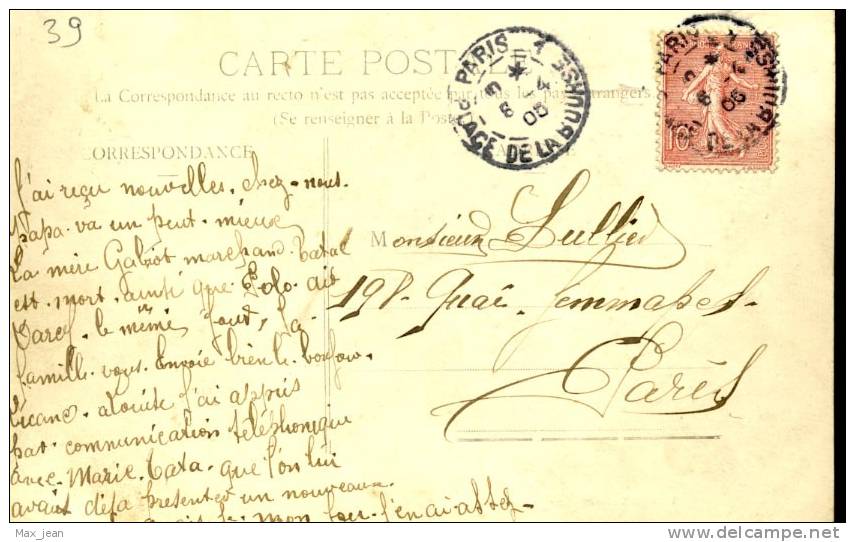 39
CARTE POSTALE
La Correspondance au recto n'est pas acceptée par tous les pays étrangers
(Se renseigner à la Poste)
CORRESPONDANCE
PARIS
PLACE DE LA BOURSE
05
PARIS
DE LA BOURSE
05
10
J'ai reçu nouvelles. chez-nous.
Papa. va un peut. mieux
La mère Gabiot marchand. tatal
est. mort. ainsi que Lolo. dit
le même jour, La
famille. vous. Envoie bien le bonjour.
j'ai appris
par communication téléphonique
avec. Marie. tata. que l'on lui
avait déjà présenter un nouveau.
mon tour. j'en ai assez-
Monsieur Lullier
198. Quai. Jemmapes.
Paris
Max_jean
delcampe.net